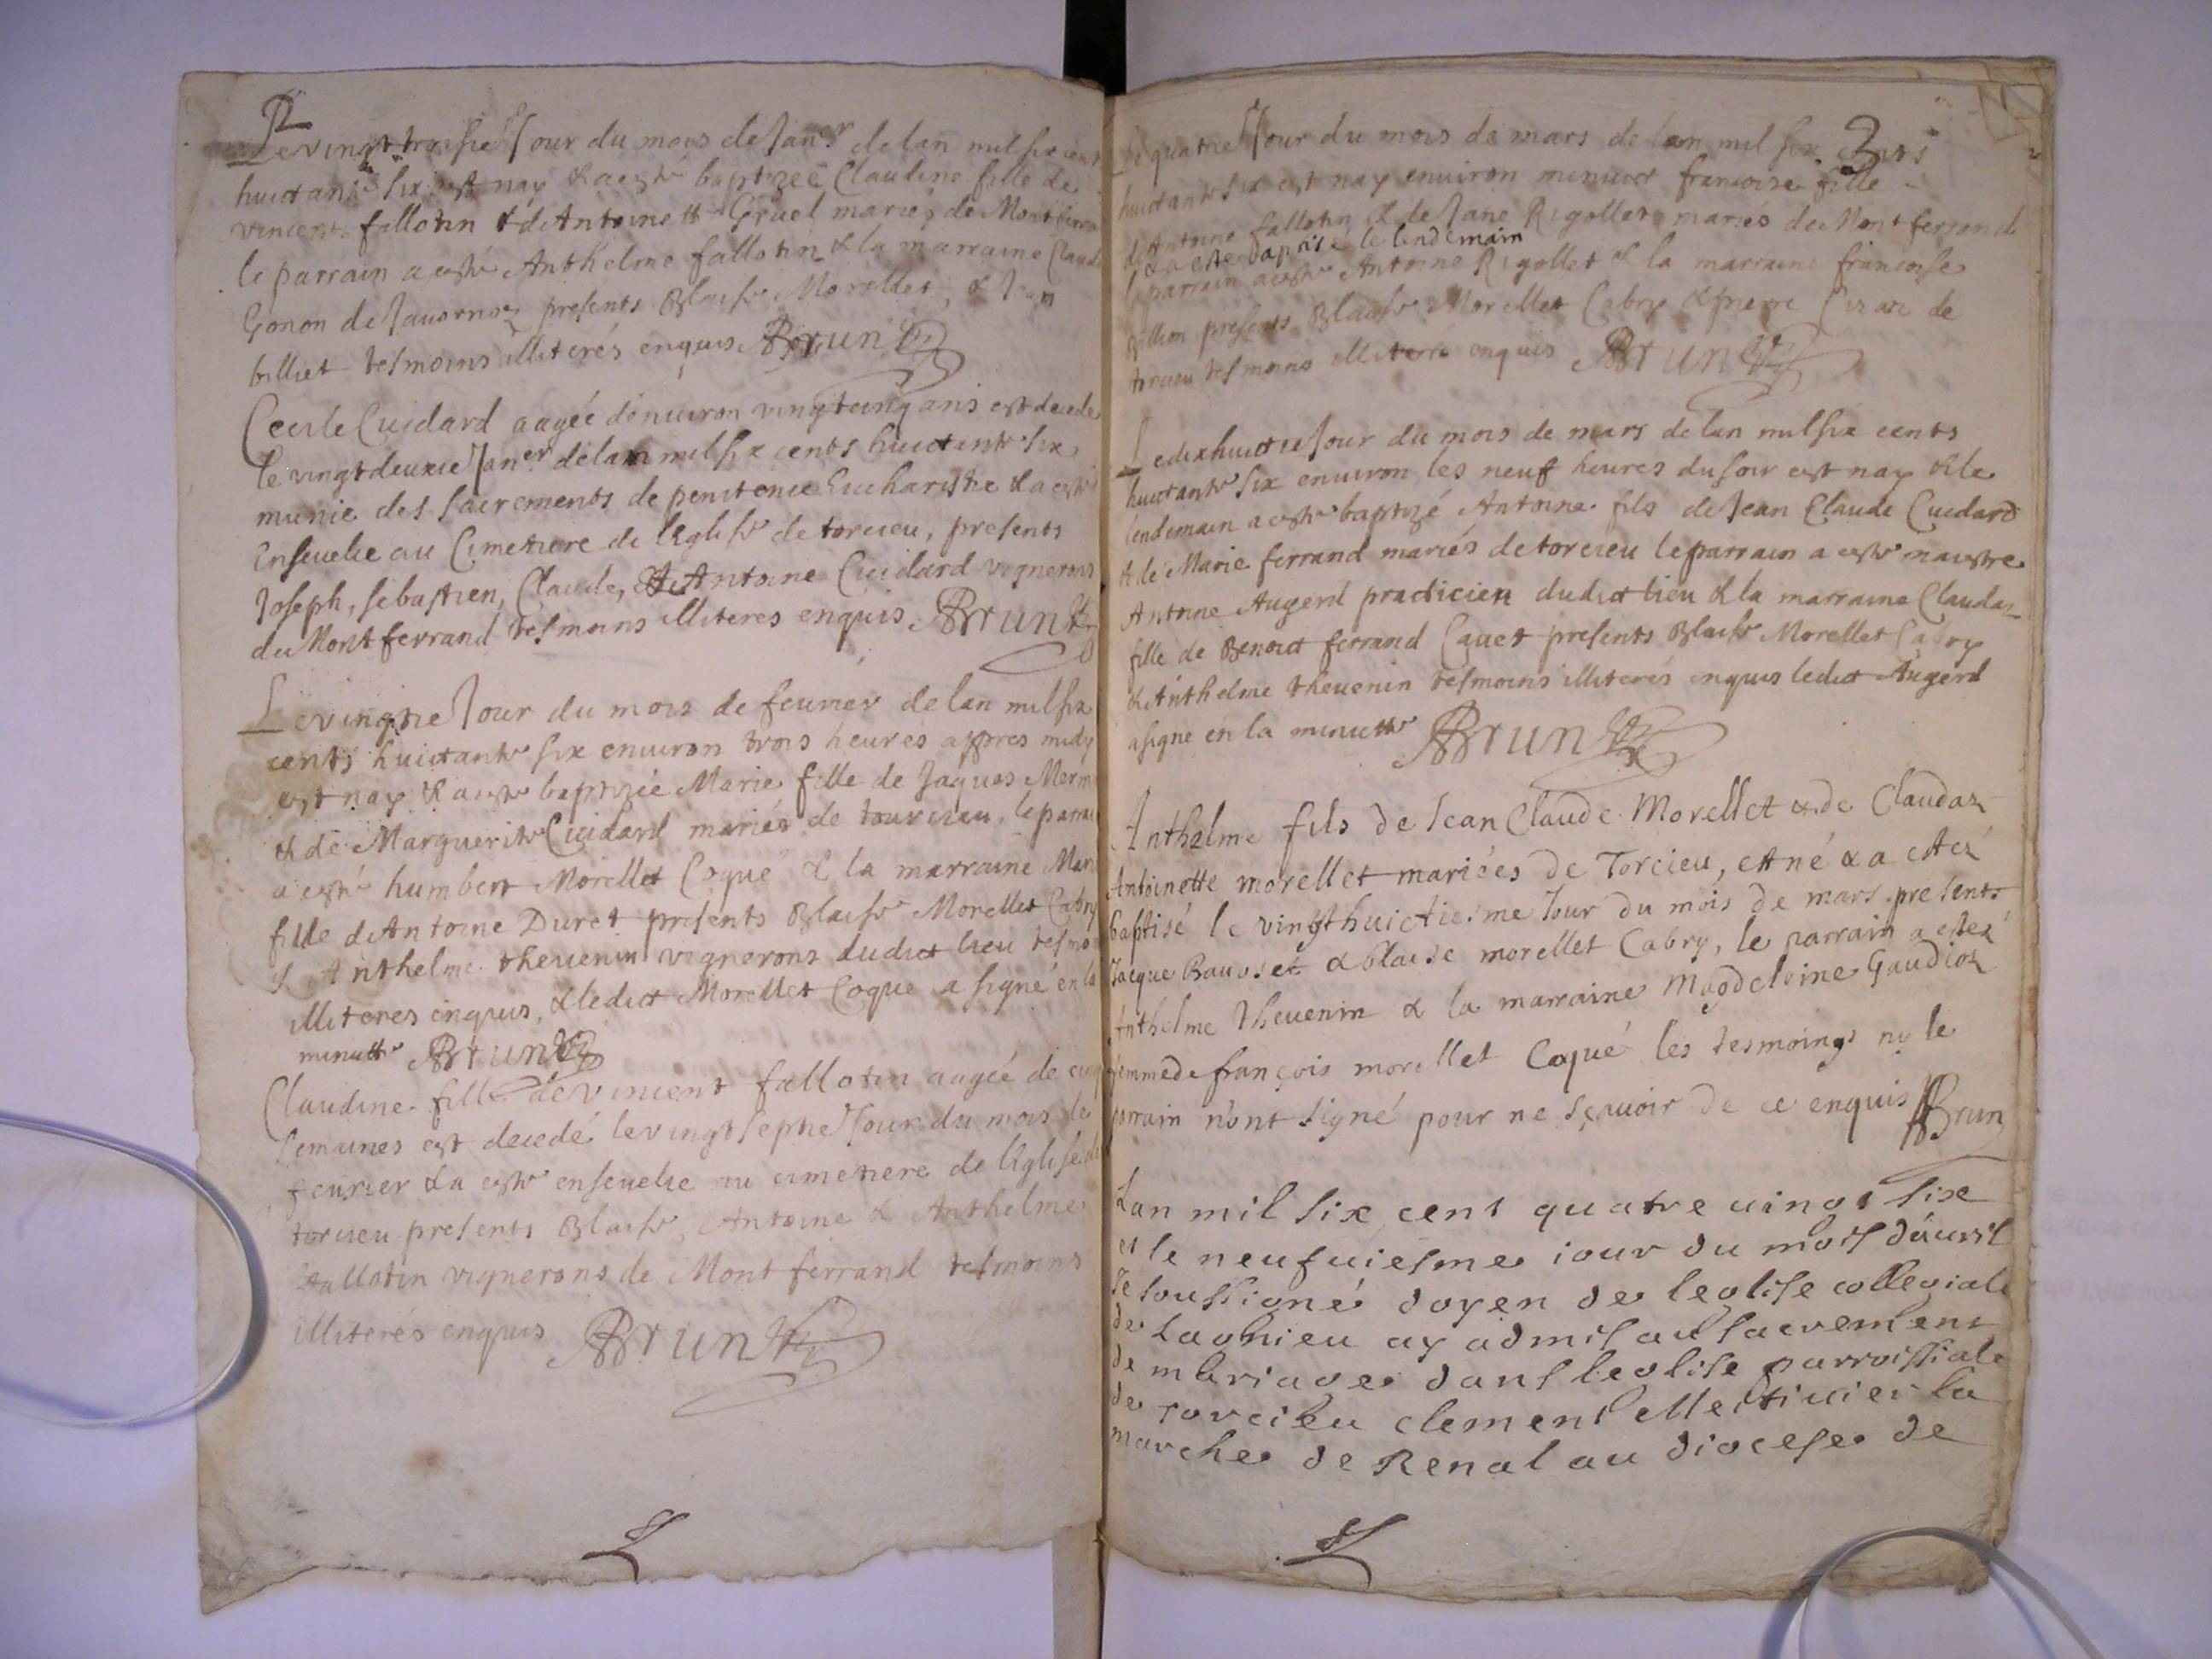 2
Le vingt troisie Jour du mois de Janer de lan mil six cent
huictante six est nay & a esté baptizeé Claudine fille de
vincent fallotin & de Antoinette Gruel mariez de Montferra
le parrain a esté Anthelme fallotin & la marraine Claud
Gonon de Javornoz presents Blaise Morellet, & Jean
billiet tesmoins illiterés enquis Brun
Cecile Cuidard aageé denviron vingtcinq ans est decede
le vingtdeuxie Janer de lan mil six cents huictante six
munie des sacrements de penitence Eucharistie & a esté
Ensevelie au Cimetiere de l'Eglise de torcieu, presents
Joseph, sebastien, Claude, & Antoine Cuidard vignerons
du Montferrand tesmoins illiteres enquis Brun
Le vingtie Jour du mois de fevrier de lan mil six
cents huictante six environ trois heures appres midy
est nay & a esté baptizée Marie fille de Jaques Merm
& de Marguerite Cuidard mariés de tourcieu, le parra
a esté humbert Morellet Coque & la marraine Mar
fille d'Antoine Duret presents Blaise Morellet Cabry
& Anthelme thevenin vignerons dudict lieu tesmo
illiteres enquis, & ledict Morellet Coque a signé en la
minutte Brun
Claudine fille de vincent fallotin aagée de cinq
semaines est decedé le vingt septie Jour du mois de
fevrier & a esté ensevelie au cimetiere de l'Eglise de
torcieu presents Blaise, Antoine & Anthelme
fallotin vignerons de Montferrand tesmoins
illiterés enquis Brun
3
Le quatrie Jour du mois de mars de lan mil six cents
huictante six est nay environ minuict francoise fille
de Antoine fallotin & de Jane Rigollet mariés de Montferrand
& a este baptisé le lendemain
le parrain a esté Antoine Rigollet & la marraine francoise
billion presents Blaise Morellet Cabry & pierre de
torcieu tesmoins illiteré enquis Brun
Le dixhuictie Jour du mois de mars de lan mil six cents
huictante six environ les neuf heures du soir est nay & le
lendemain a esté baptizé Antoine fils de Jean Claude Cuidard
& de Marie ferrand mariés de torcieu le parrain a esté maistre
Antoine Augerd practicien dudict lieu & la marraine Claudaz
fille de Benoict ferrand Cavet presents Blaise Morellet Cabry
& Anthelme thevenin tesmoins illiterés enquis ledict Augerd
a signe en la minutte Brun
Anthelme fils de Jean Claude Morellet & de Claudaz
Antoinette morellet mariées de Torcieu, est né & a estez
baptisé le vingthuictiesme Jour du mois de mars presents
Jacque & blaise morellet Cabry, le parrain a estez
Anthelme Thevenin & la marraine Magdeloine Gaudioz
femme de françois morellet Coqué les tesmoings ny le
parrain nont signé pour ne sçavoir de ce enquis Brun
Lan mil six cent quatre vingt six
et le neufviesme iour du mois d'avril
Je soussigné doyen de leglise collegiale
de Lagnieu ay admis au sacrement
de mariage dans leglise parroissiale
de torcieu clement la
marche de Renal au diocese de